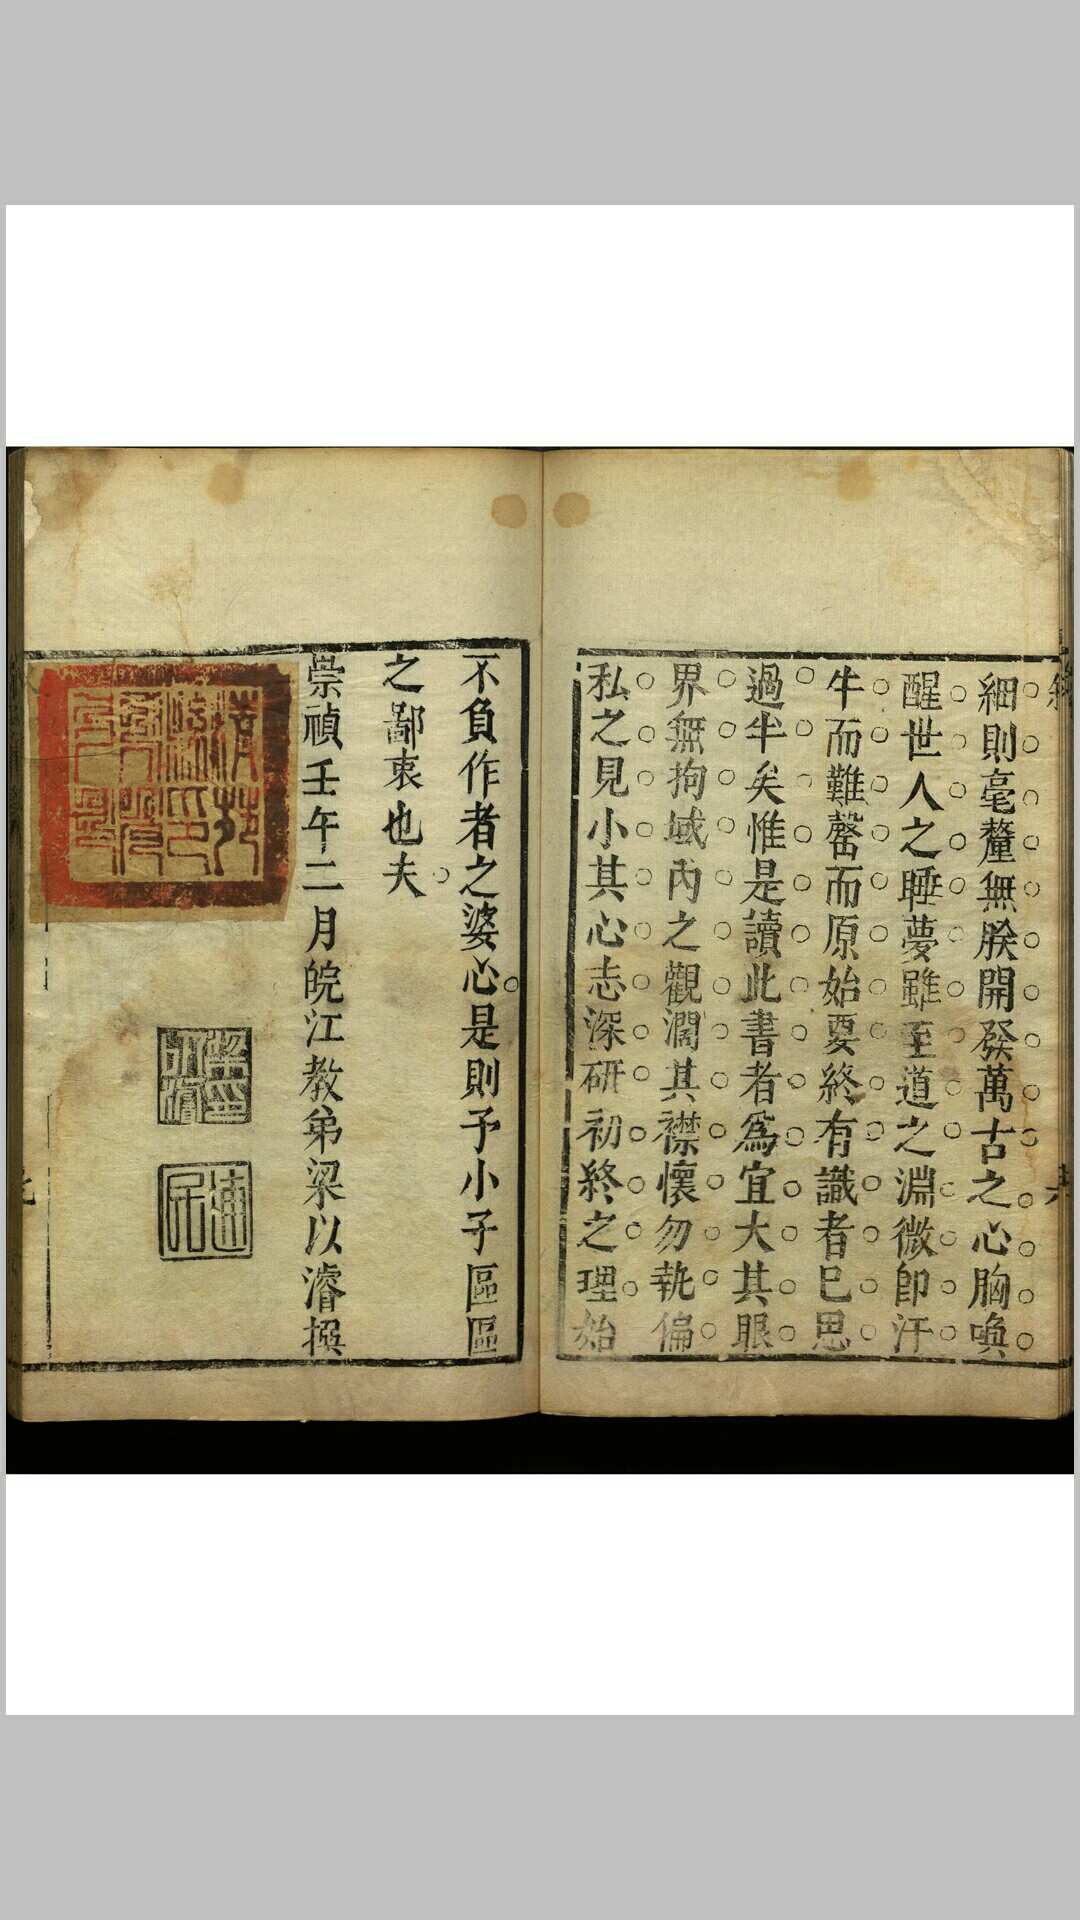 細則毫釐無朕開發萬古之心胸喚
醒世人之睡夢雖至道之淵微卽汗
牛而難罄而原始要終有識者已思
過半矣惟是讀此書者爲宜大其眼
界無拘域內之觀濶其襟懷勿執偏
私之見小其心志深硏初終之理始
不負作者之婆心是則予小子區區
之鄙衷也夫
崇禎壬午二月皖江教弟梁以濬撰